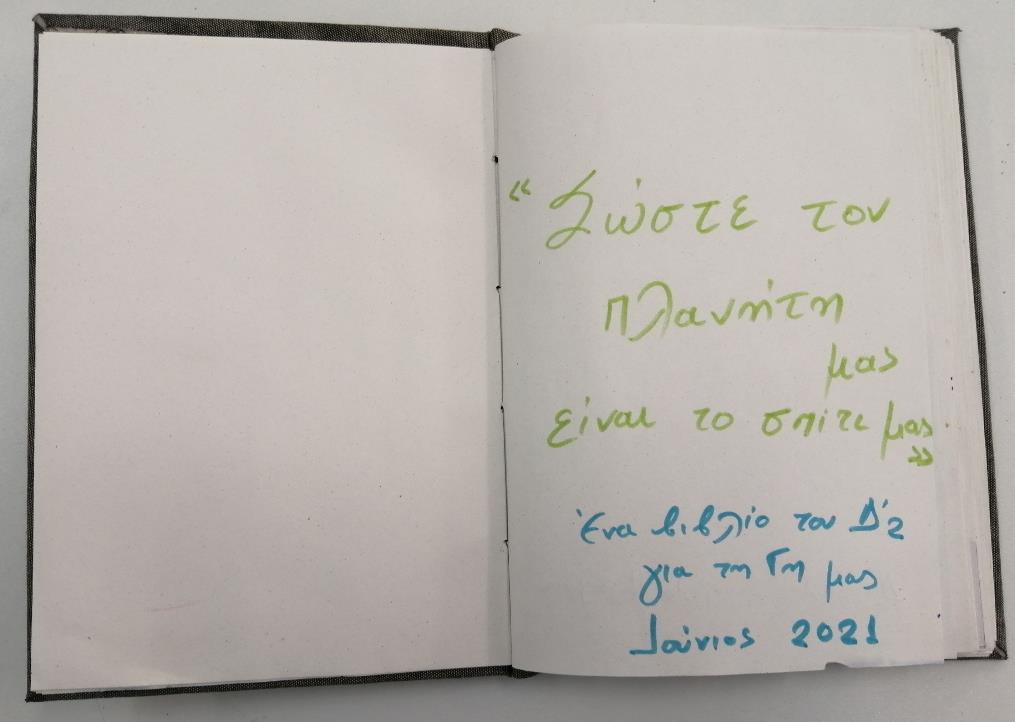 «Σώστε τον
πλανήτη
μας
είναι το σπίτι μας
»
Ένα βιβλίο του Δ'2
για τη Γη μας
Ιούνιος 2021